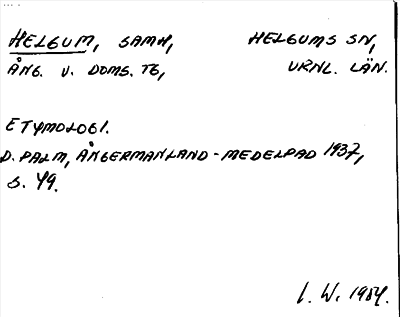 HELGUM, SAMH, HELGUMS SN,
ÅNG. V. DOMS. TG, VRNL. LÄN.
ETYMOLOGI.
D. PALM, ÅNGERMANLAND - MEDELPAD 1937,
S. 49.
L. W. 1984.